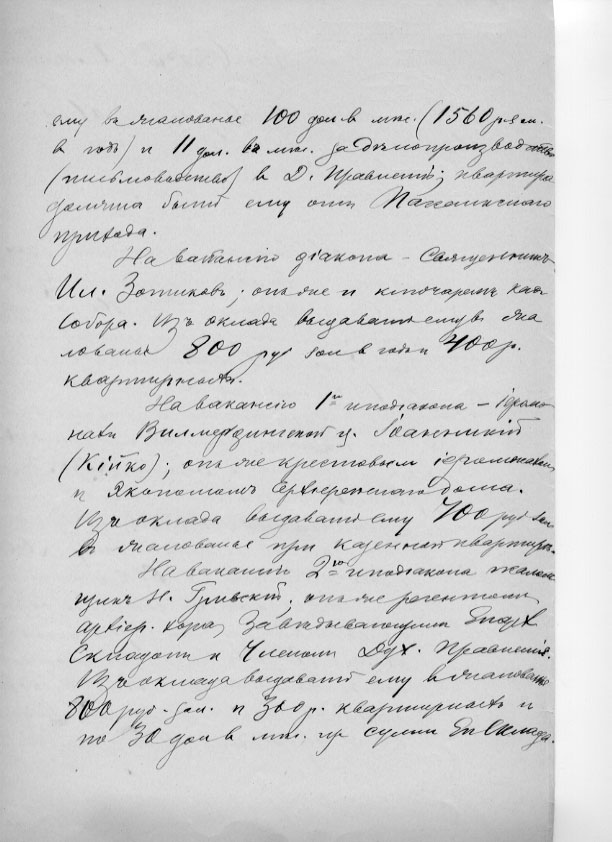 ему въ жалованье 100 дол. в мѣс. (1560 р. зол.
в годъ) и 11 дол. въ мѣс. за дѣлопроизводство
(письмоводство) в Д. Правленіи; квартира
должна быть ему отъ
прихода.
На вакансію діакона – Священникъ
Ил. Зотиковъ; онъ же и ключаремъ каѳ.
Собора. Изъ оклада выдавать ему въ жа
лованье 800 руб зол в годъ и 400 р.
квартирныхъ.
На вакансію 1го иподіакона – іеромо
нахъ ц. Іоанникій
(Кійко); онъ же крестовымъ іеромонахомъ
и экономомъ Архіерейскаго дома.
Изъ оклада выдавать ему 700 руб зол
въ жалованье при казенной квартирѣ.
На вакансію 2го иподіакона
Н. Гривскій; онъ же регентомъ
архіер. хора, Завѣдывающимъ Епарх
Складомъ и Членомъ Дух. Правленія.
Изъ оклада выдавать ему в жалованье
800 руб. зол. и 300 р. квартирныхъ и
по 30 дол в мѣс. из суммъ Еп Склада.